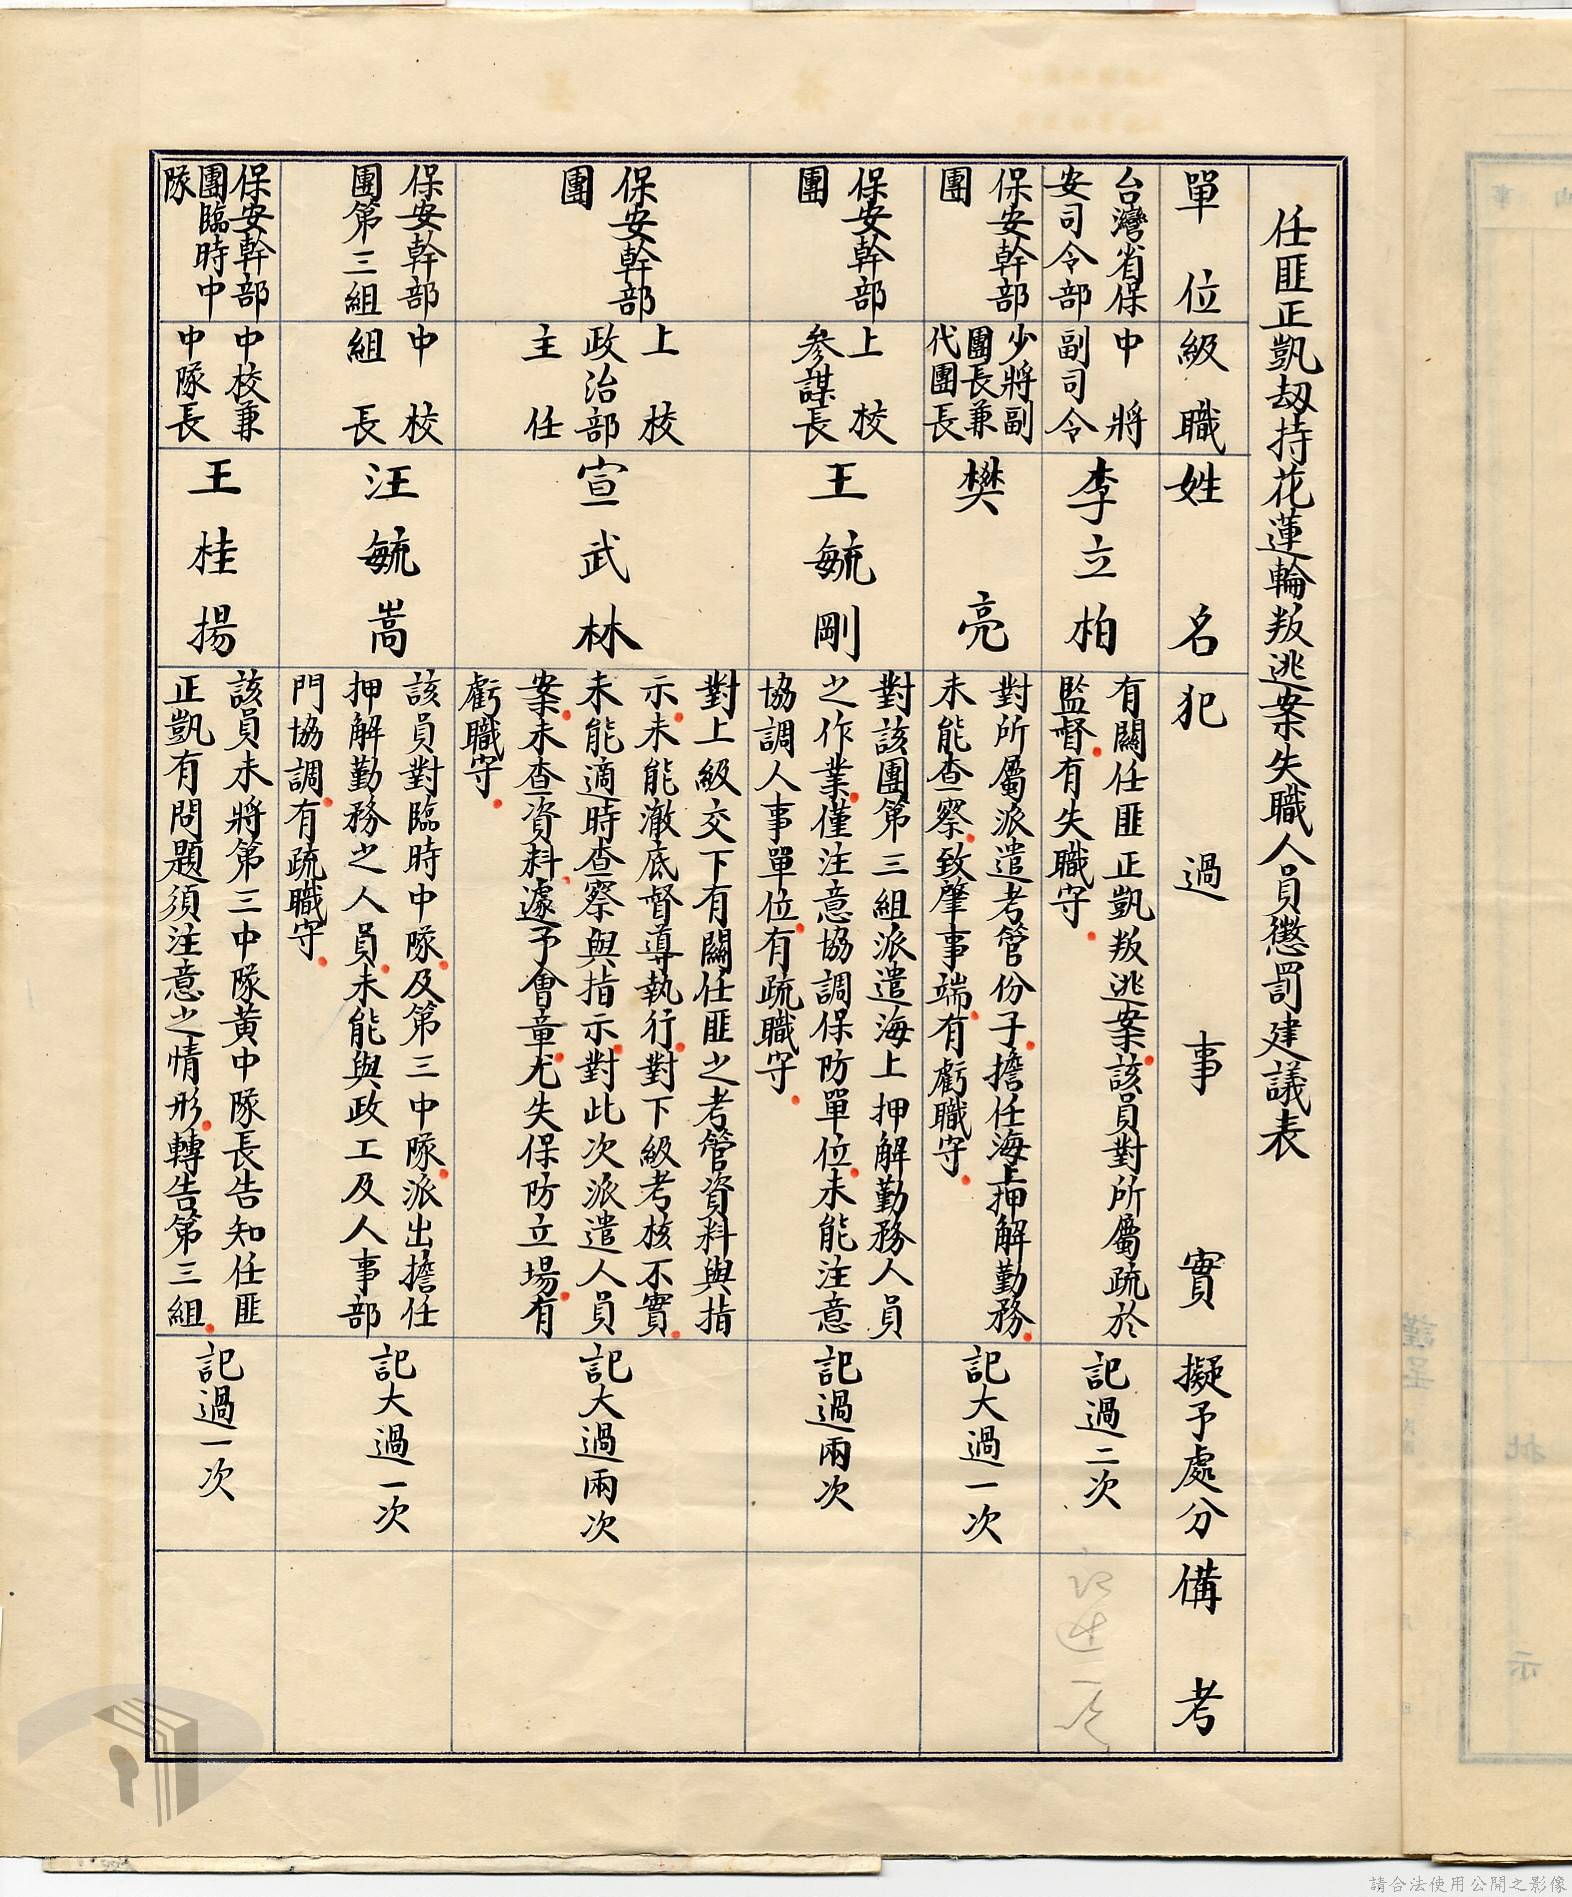 任匪正凱刼持花蓮輪叛逃案失職人員懲罰建議表
單位
級職
姓名
犯過事實
擬予處分
備考
台灣省保
安司令部
中將
副司令
李立柏
有關任匪正凱叛逃案該員對所屬疏於
監督有失職守
記過二次
保安幹部
團
少將副
團長兼
代團長
樊亮
對所屬派遣考管份子擔任海上押解勤務
未能查察致肇事端有虧職守
記大過一次
保安幹部
團
上校
參謀長
王毓剛
對該團第三組派遣海上押解勤務人員
之作業僅注意協調保防單位未能注意
協調人事單位有疏職守
記過兩次
保安幹部
團
上校
政治部
主任
宣武林
對上級交下有關任匪之考管資料與指
示未能澈底督導執行對下級考核不實
未能適時查察與指示對此次派遣人員
案未查資料遽予會章尤失保防立場有
虧職守
記大過兩次
保安幹部
團第三組
中校
組長
汪毓嵩
該員對臨時中隊及第三中隊派出擔任
押解勤務之人員未能與政工及人事部
門協調有疏職守
記大過一次
保安幹部
團臨時中
隊
中校兼
中隊長
王桂揚
該員未將第三中隊黃中隊長告知任匪
正凱有問題須注意之情形轉告第三組
記過一次
請合法使用公開之影像